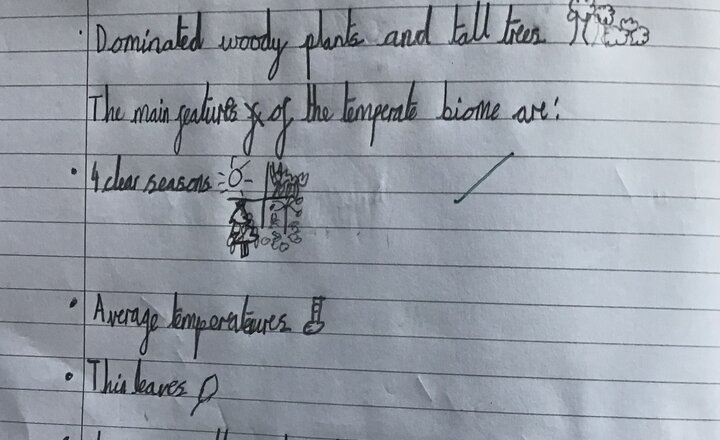 Dominated woody plants and tall trees
The main features of the temperate biome are:
4 clear seasons
Average temperatures
Thin leaves